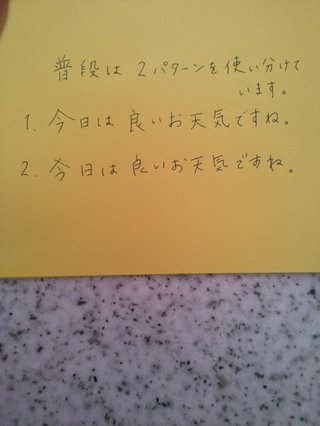 普段は2パターンを使い分けて
います。
1. 今日は良いお天気ですね。
2. 今日は良いお天気ですね。